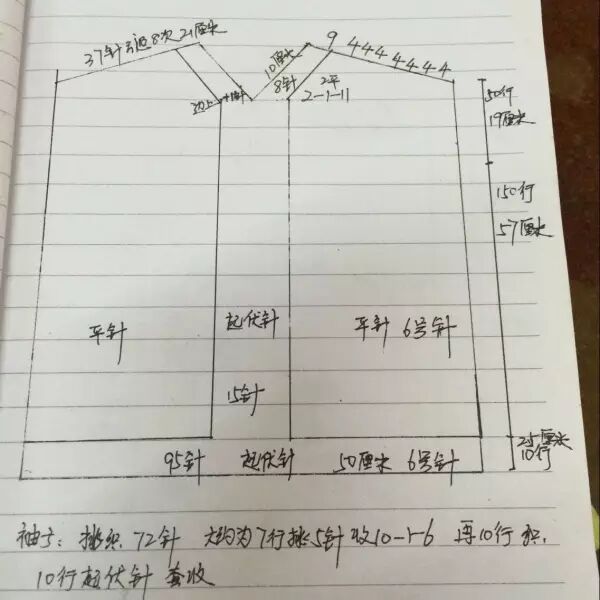 37针引返8次 21厘米
10厘米
8针
9 444 4444
2平
2-1-11
边上+1针
50行
19厘米
150行
57厘米
平针
起伏针
平针 6号针
15针
2.5厘米
10行
95针 起伏针 50厘米 6号针
袖子: 挑织72针 大约为7行挑5针 收10-1-6 再10行织,
10行起伏针 套收